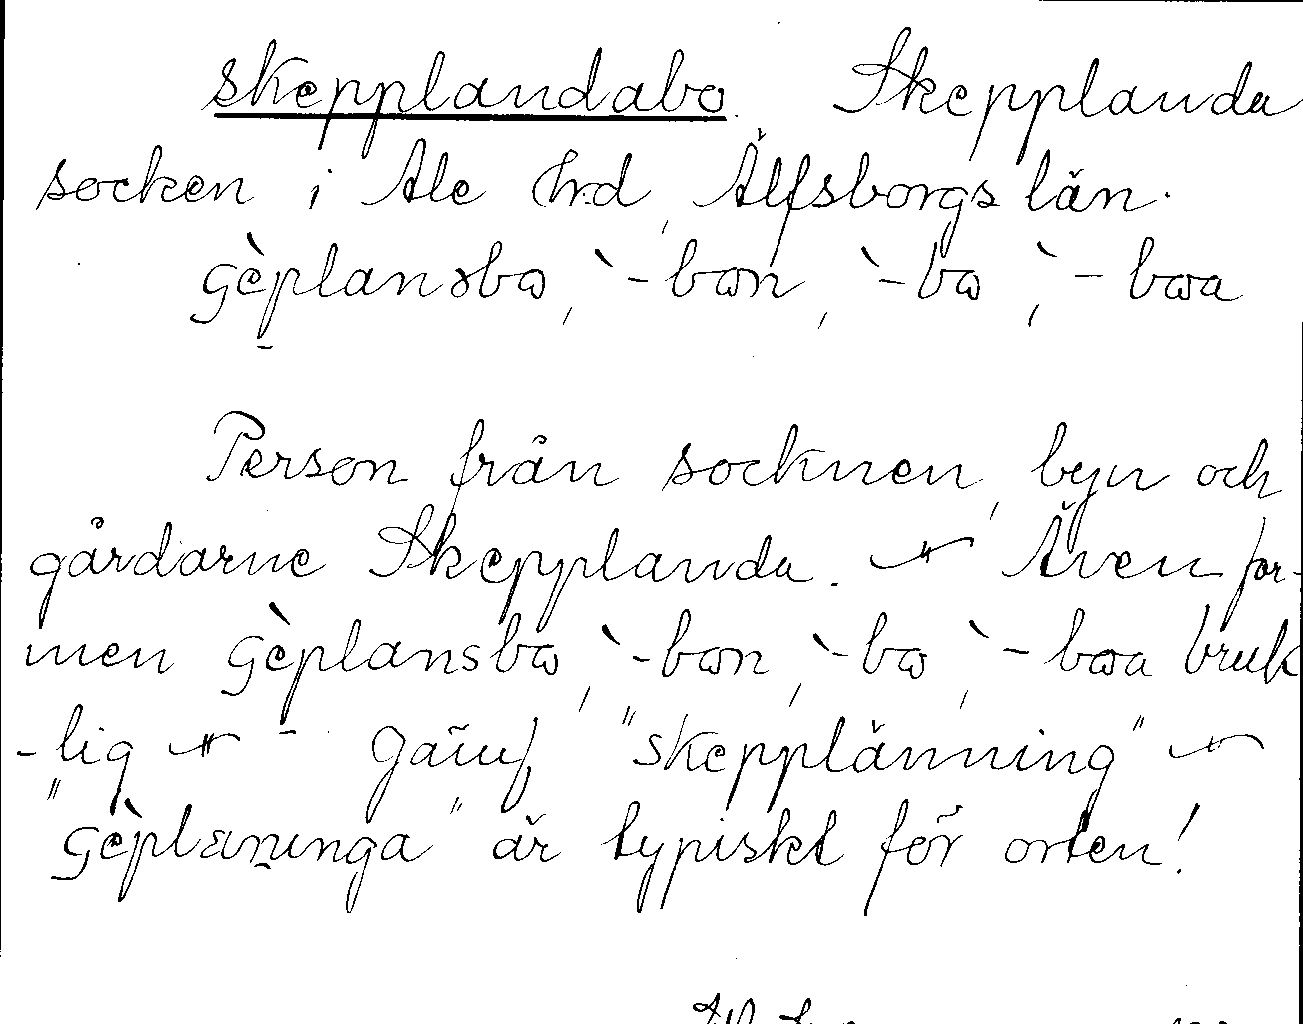 skepplandabo Skepplanda
socken i Ale hrd, Älfsborgs län.
gèplansbω, `-bωn, `-bω, `-bωa
Person från socknen, byn och
gårdarne Skepplanda. Även for-
men gèplansbω, `-bωn, `-bω, `-bωa bruk
-lig - Jämf, "skepplänning"
"gèplæninga" är typiskt för orten!